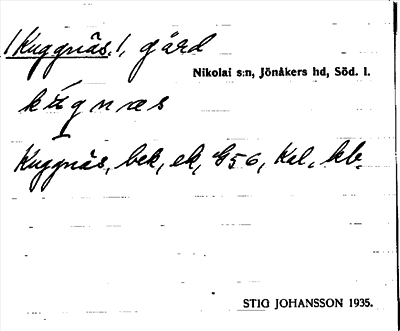 /Kuggnäs./, gård
Nikolai s:n, Jönåkers hd, Söd. l.
Kuggnäs, bek, ek, G56, Kel, kb.
STIG JOHANSSON 1935.